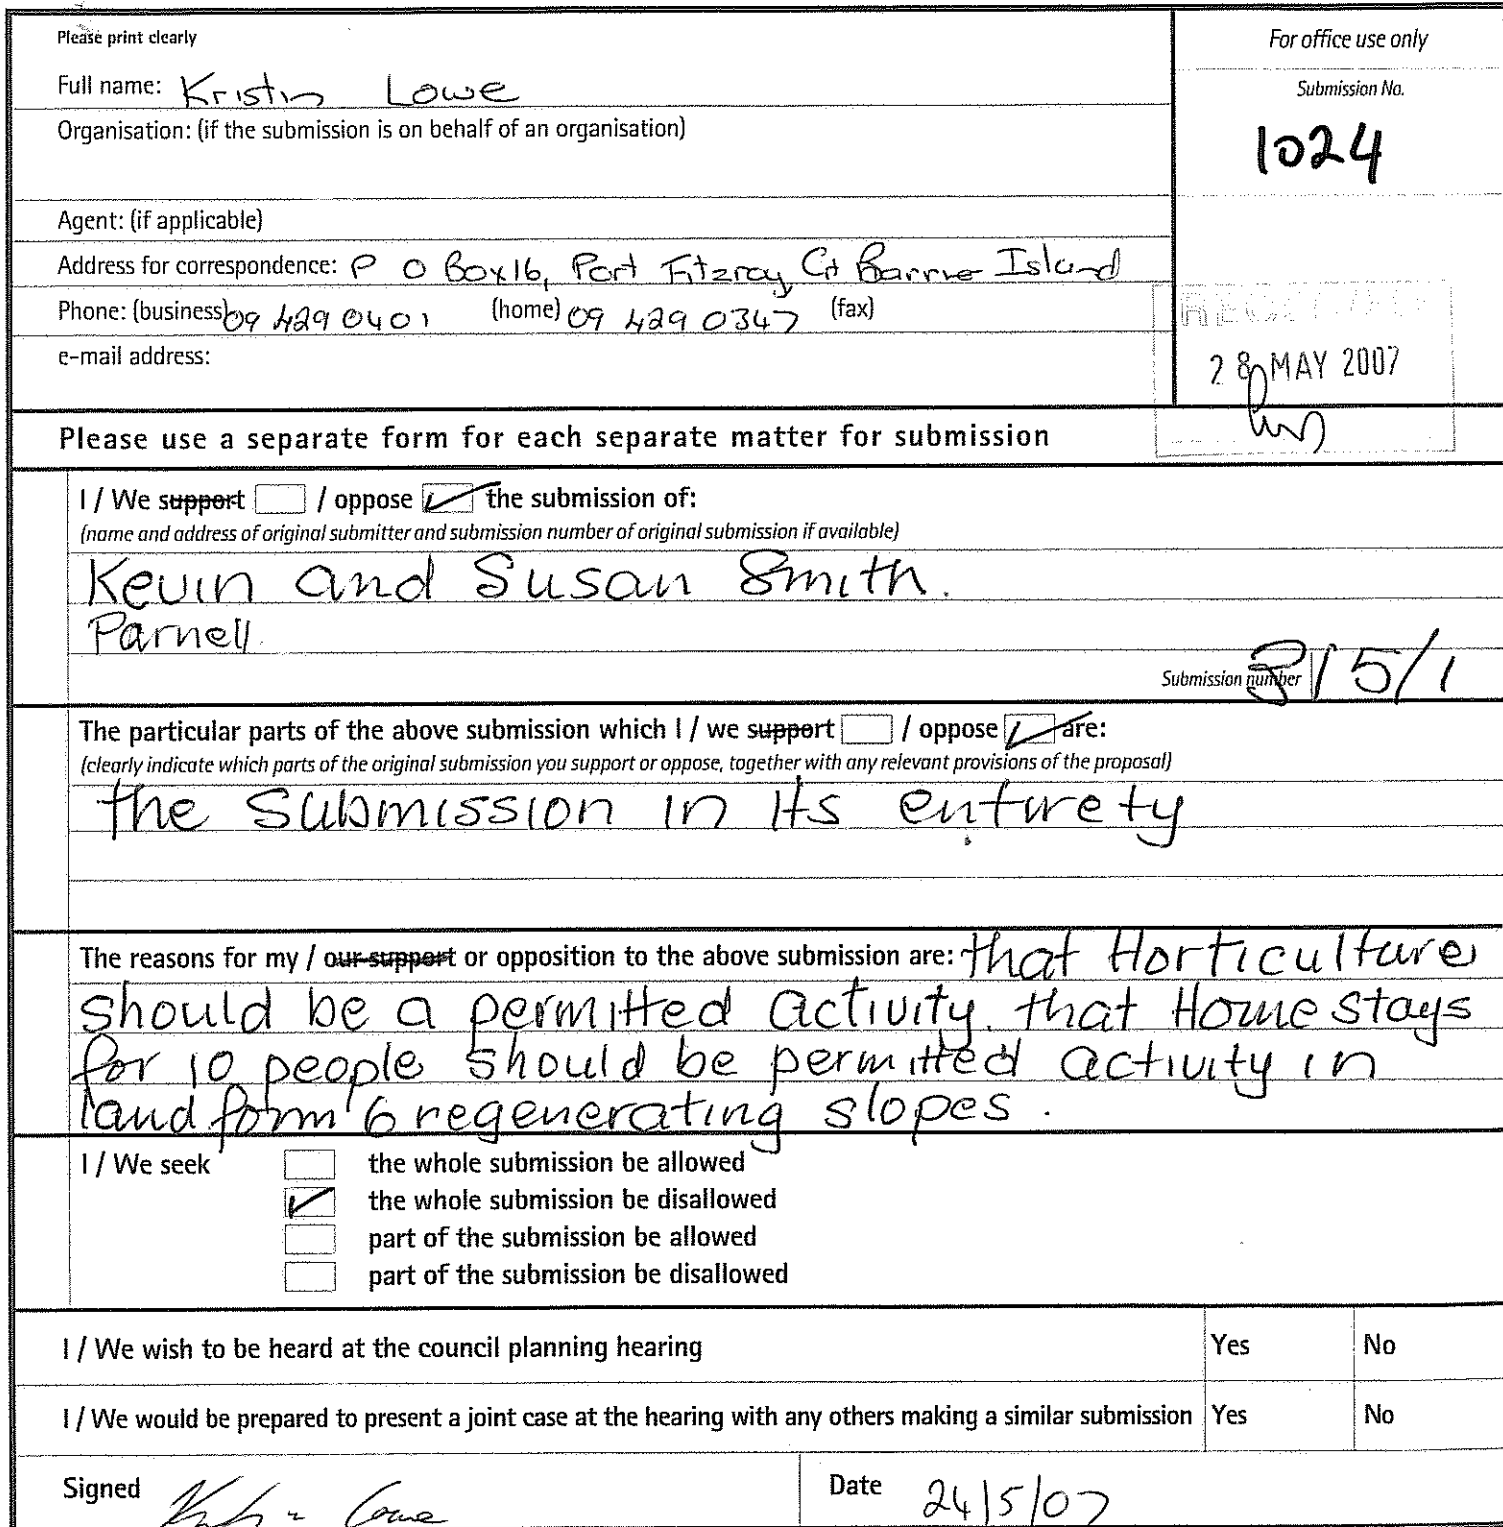 Please print clearly
For office use only
Full name: Kristin Lowe
Submission No.
1024
Organisation: (if the submission is on behalf of an organisation)
Agent: (if applicable)
Address for correspondence: P O Box 16, Port Fitzroy Gt Barrier Island
Phone: (business) 09 429 0401 (home) 09 429 0347 (fax)
RECEIVED
e-mail address:
28 MAY 2007
Please use a separate form for each separate matter for submission
I / We support / oppose ✓ the submission of:
(name and address of original submitter and submission number of original submission if available)
Kevin and Susan Smith.
Parnell.
Submission number 315/1
The particular parts of the above submission which I / we support / oppose ✓ are:
(clearly indicate which parts of the original submission you support or oppose, together with any relevant provisions of the proposal)
the submission in its entirety
The reasons for my / our support or opposition to the above submission are: that Horticulture
should be a permitted activity. that Homestays
for 10 people should be permitted activity in
land form 6 regenerating slopes.
I / We seek the whole submission be allowed
✓ the whole submission be disallowed
part of the submission be allowed
part of the submission be disallowed
I / We wish to be heard at the council planning hearing Yes No
I / We would be prepared to present a joint case at the hearing with any others making a similar submission Yes No
Signed Kristin Lowe Date 24/5/07